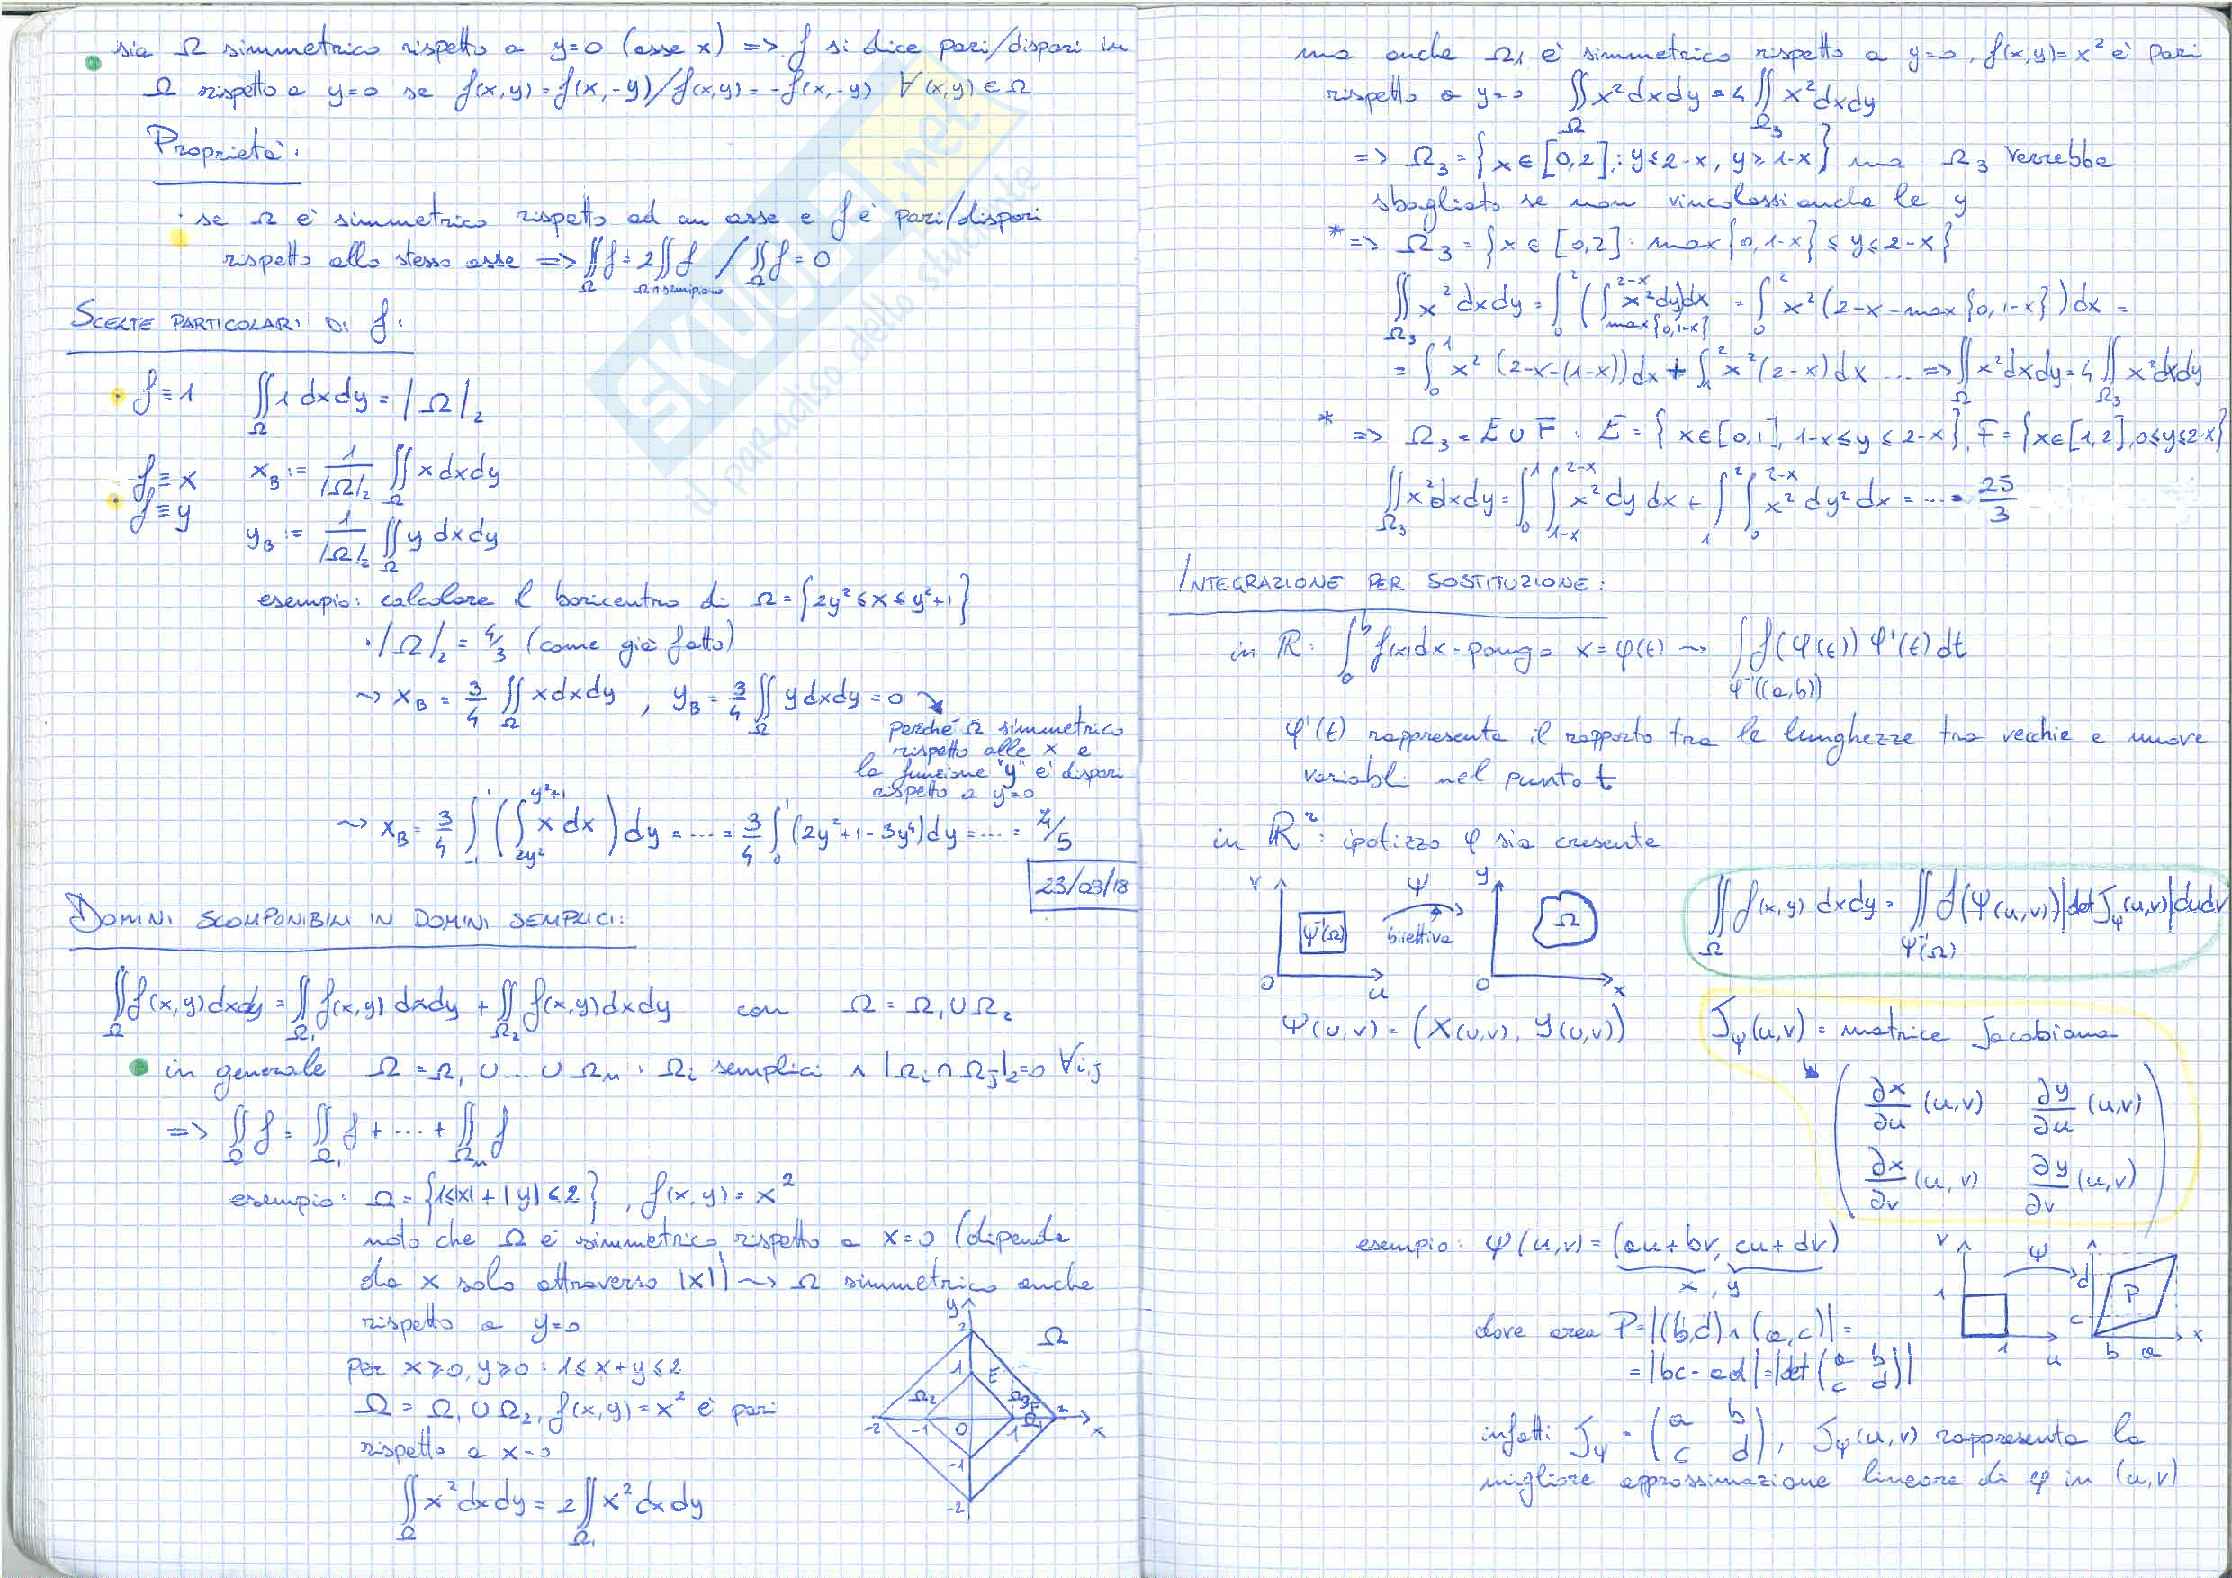 sia Ω simmetrico rispetto a y=0 (asse x) => f si dice pari/dispari in
Ω rispetto a y=0 se f(x,y) = f(x,-y) / f(x,y) = -f(x,-y) ∀(x,y) ∈ Ω
Proprietà:
· se Ω è simmetrico rispetto ad un asse e f è pari/dispari
rispetto allo stesso asse => ∬_Ω f = 2∬_{Ω∩semipiano} f / ∬_Ω f = 0
SCELTE PARTICOLARI DI f:
· f≡1 ∬_Ω 1 dxdy = |Ω|₂
f≡x x_B := 1/|Ω|₂ ∬_Ω x dxdy
· f≡y y_B := 1/|Ω|₂ ∬_Ω y dxdy
esempio: calcolare il baricentro di Ω = {2y² ≤ x ≤ y²+1}
· |Ω|₂ = 4/3 (come già fatto)
~> x_B = 3/4 ∬_Ω x dxdy , y_B = 3/4 ∬_Ω y dxdy = 0
perché Ω simmetrico
rispetto alle x e
la funzione "y" è dispari
rispetto a y=0
~> x_B = 3/4 ∫_{-1}^{1} (∫_{2y²}^{y²+1} x dx) dy = .... = 3/4 ∫_0^1 (2y²+1-3y⁴) dy = .... = 4/5
23/03/18
DOMINI SCOMPONIBILI IN DOMINI SEMPLICI:
∬_Ω f(x,y) dxdy = ∬_Ω₁ f(x,y) dxdy + ∬_Ω₂ f(x,y) dxdy con Ω = Ω₁ ∪ Ω₂
in generale Ω = Ω₁ ∪ ... ∪ Ω_n : Ω_i semplici ∧ |Ω_i ∩ Ω_j|₂ = 0 ∀i,j
=> ∬_Ω f = ∬_Ω₁ f + .... + ∬_Ω_n f
esempio: Ω = {1≤|x|+|y|≤2} , f(x,y) = x²
noto che Ω è simmetrico rispetto a x=0 (dipende
da x solo attraverso |x|) ~> Ω simmetrico anche
rispetto a y=0
per x≥0, y≥0 : 1≤x+y≤2
Ω = Ω₁ ∪ Ω₂, f(x,y) = x² è pari
rispetto a x=0
∬_Ω x² dxdy = 2∬_Ω₁ x² dxdy
y
2
Ω
1
E
Ω₂
Ω₃
F
Ω₁
-2 -1 0 1 2 x
-1
-2
ma anche Ω₁ è simmetrico rispetto a y=0, f(x,y) = x² è pari
rispetto a y=0 ∬_Ω x² dxdy = 4∬_Ω₃ x² dxdy
=> Ω₃ = {x ∈ [0,2] : y≤2-x, y≥1-x} ma Ω₃ verrebbe
sbagliato se non vincolassi anche le y
* => Ω₃ = {x ∈ [0,2] : max{0,1-x} ≤ y ≤ 2-x}
∬_Ω₃ x² dxdy = ∫_0^2 (∫_{max{0,1-x}}^{2-x} x² dy) dx = ∫_0^2 x² (2-x-max{0,1-x}) dx =
= ∫_0^1 x² (2-x-(1-x)) dx + ∫_1^2 x² (2-x) dx ... => ∬_Ω x² dxdy = 4∬_Ω₃ x² dxdy
* => Ω₃ = E ∪ F : E = {x∈[0,1], 1-x≤y≤2-x}, F = {x∈[1,2], 0≤y≤2-x}
∬_Ω₃ x² dxdy = ∫_0^1 ∫_{1-x}^{2-x} x² dy dx + ∫_1^2 ∫_0^{2-x} x² dy² dx = .... = 25/3
INTEGRAZIONE PER SOSTITUZIONE:
in ℝ: ∫_a^b f(x)dx - pongo x = φ(t) ~> ∫_{φ⁻¹((a,b))} f(φ(t)) φ'(t) dt
φ'(t) rappresenta il rapporto tra le lunghezze tra vecchie e nuove
variabli nel punto t
in ℝ²: ipotizzo φ sia crescente
v Ψ y
Ψ⁻¹(Ω) biettiva Ω
0 u 0 x
∬_Ω f(x,y) dxdy = ∬_{Ψ⁻¹(Ω)} f(Ψ(u,v)) |det J_Ψ(u,v)| dudv
Ψ(u,v) = (x(u,v), y(u,v))
J_Ψ(u,v) = matrice Jacobiana
∂x/∂u (u,v) ∂y/∂u (u,v)
∂x/∂v (u,v) ∂y/∂v (u,v)
esempio: Ψ(u,v) = (au+bv, cu+dv)
x , y
v Ψ d
1 P
c
1 u b a x
dove area P = |(b,d) ∧ (a,c)| =
= |bc-ad| = |det (a b c d)|
infatti J_Ψ = (a b c d), J_Ψ(u,v) rappresenta la
migliore approssimazione lineare di φ in (u,v)
SKUOLA.net
il paradiso dello studente